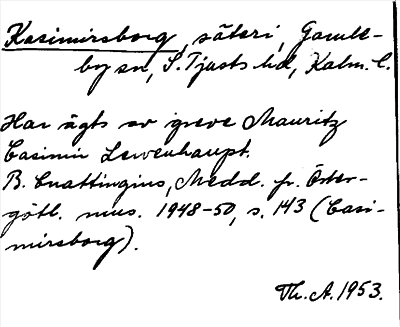 Kasimirsborg, säteri, Gamle-
by sn, S. Tjusts hd, Kalm. l.
Har ägts av greve Mauritz
Casimir Lewenhaupt.
B. Cnattingius, Medd. fr. Öster-
götl. mus. 1948-50, s. 143 (Casi-
mirsborg).
Th. A. 1953.